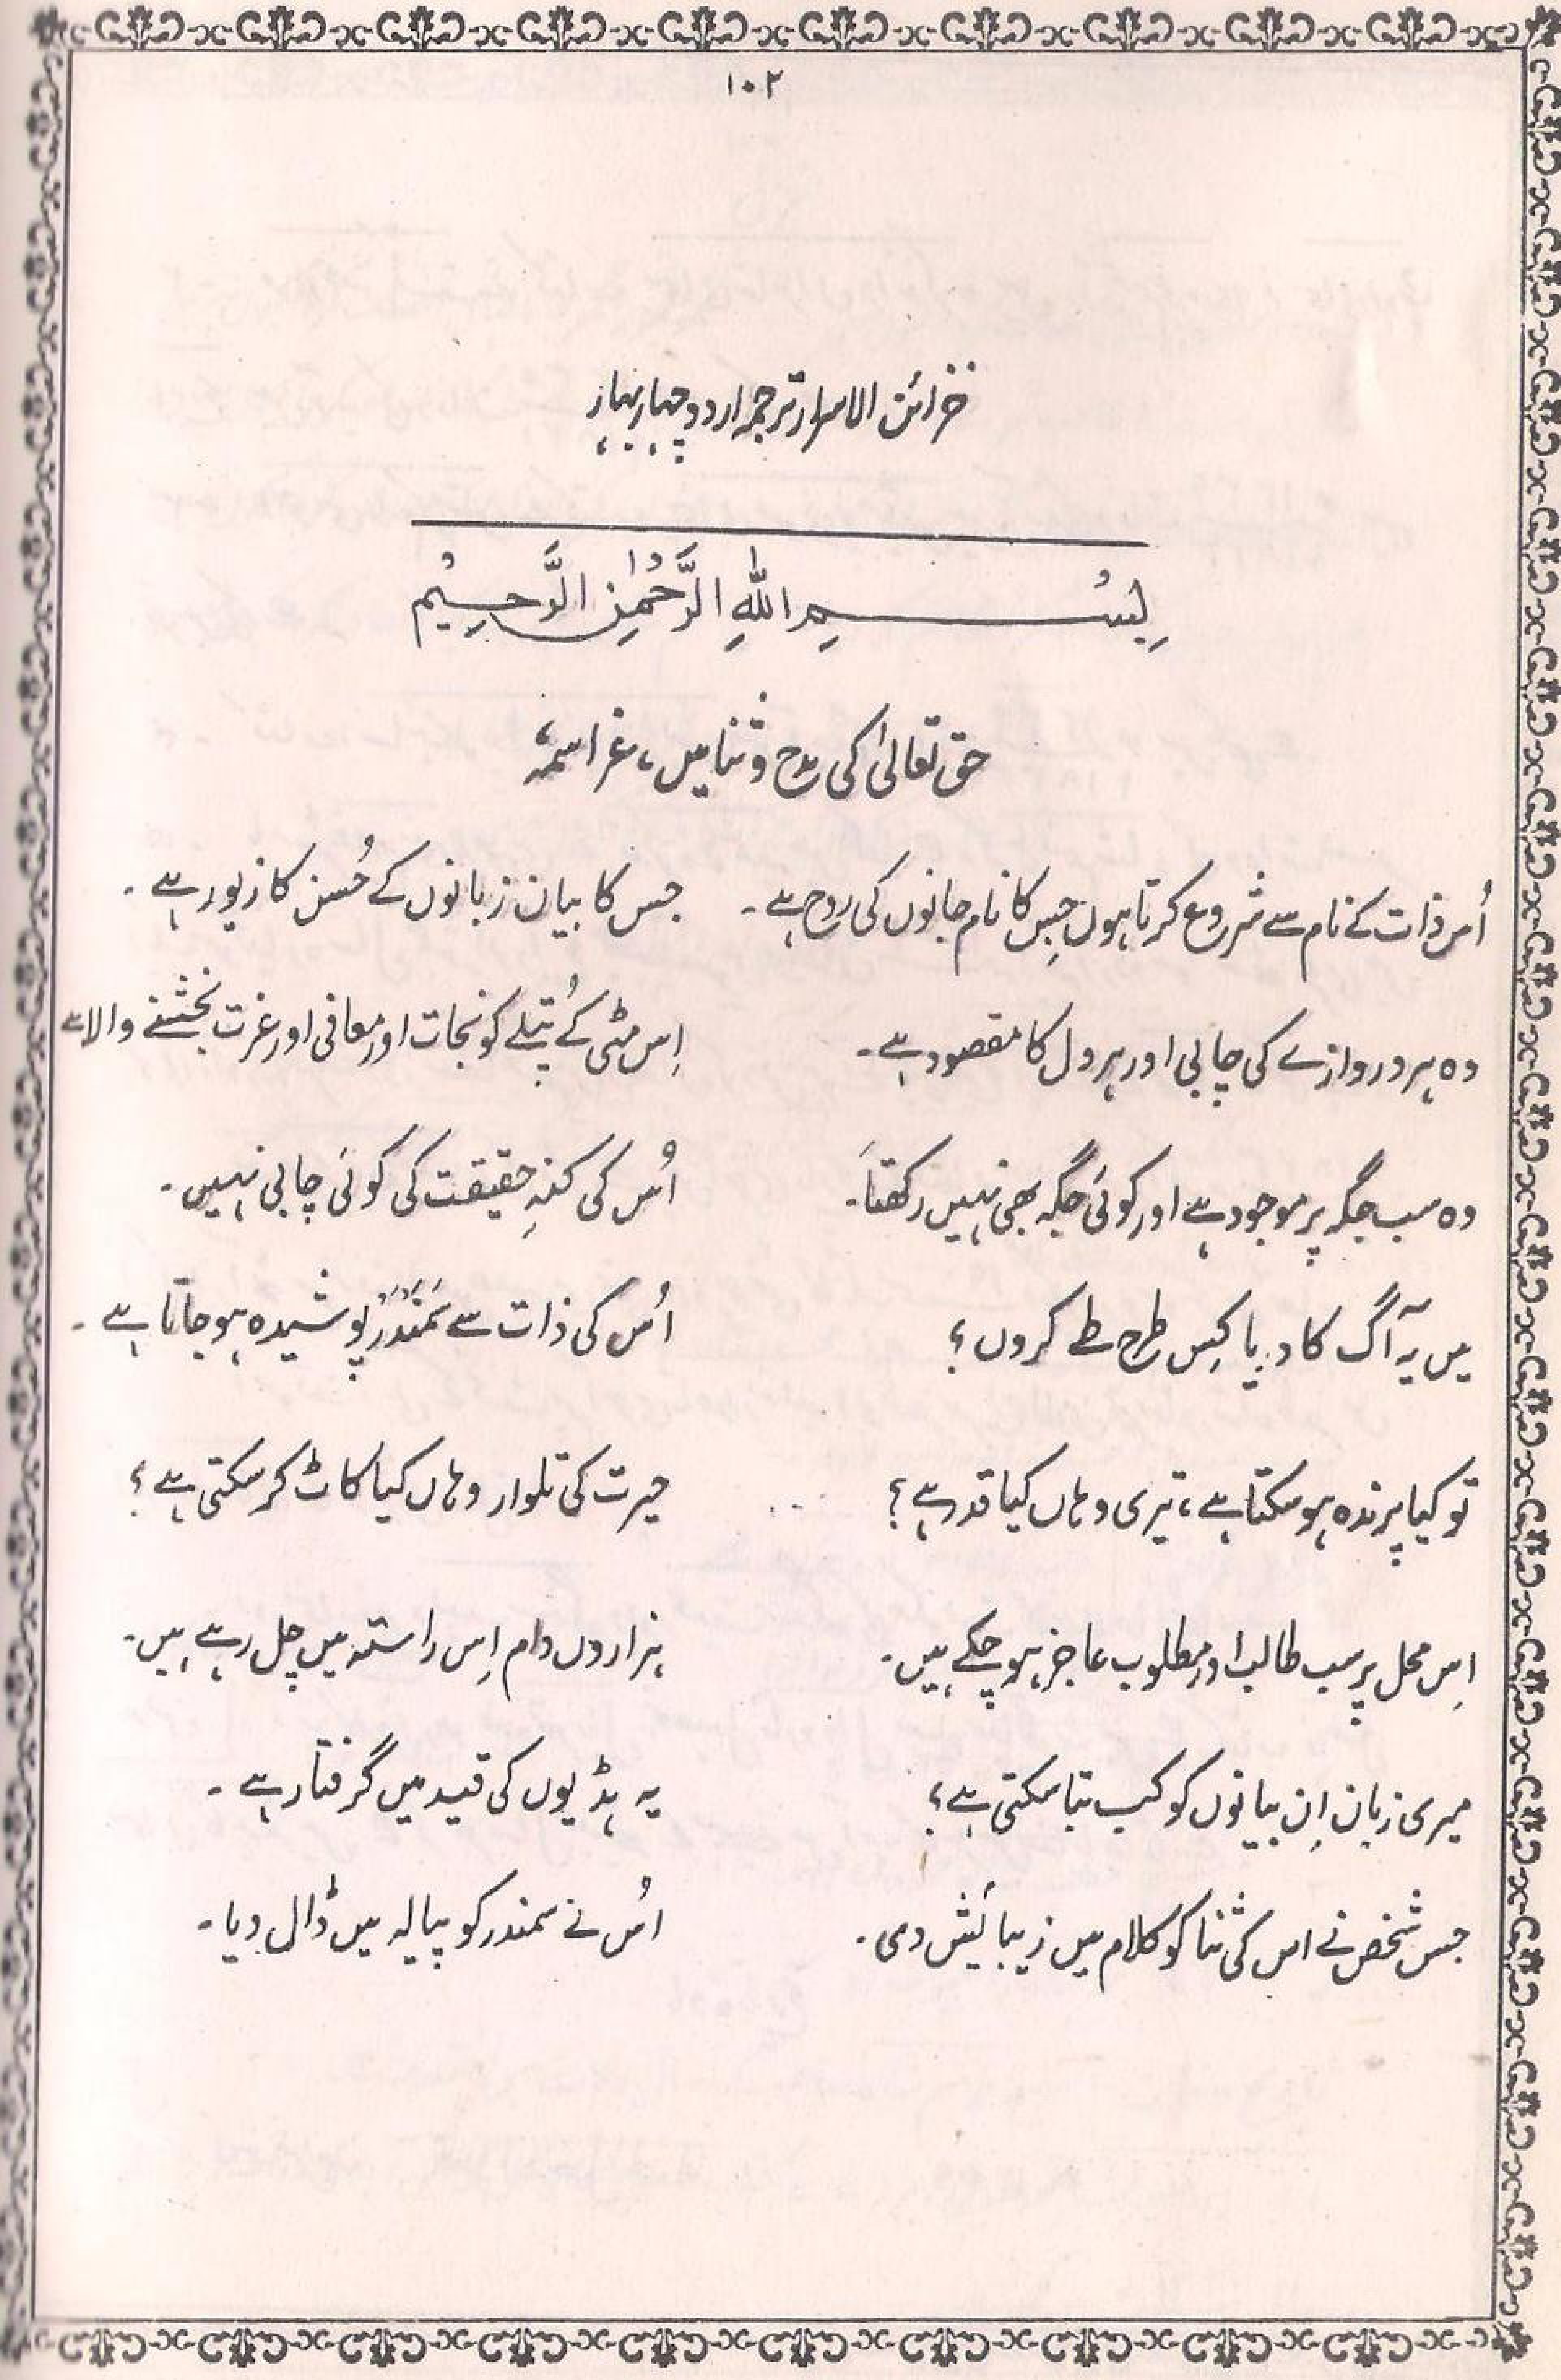 ۱۰۲
خزائن الاسرار ترجمہ اردو چہار بہار
بِسْمِ اللّٰهِ الرَّحْمٰنِ الرَّحِيْمِ
حق تعالیٰ کی مدح و ثنا میں، عز اسمہٗ
اُس ذات کے نام سے شروع کرتا ہوں جِس کا نام جانوں کی روح ہے۔ جس کا بیان زبانوں کے حُسن کا زیور ہے۔
وہ ہر دروازے کی چابی اور ہر دل کا مقصود ہے۔ اِس مٹی کے پُتلے کو نجات اور معافی اور عزت بخشنے والا ہے
وہ سب جگہ پر موجود ہے اور کوئی جگہ بھی نہیں رکھتا۔ اُس کی کنہِ حقیقت کی کوئی چابی نہیں۔
میں یہ آگ کا دریا کِس طرح طے کروں؟ اُس کی ذات سے سَمَنْدَر پوشیدہ ہو جاتا ہے۔
تو کیا پرندہ ہو سکتا ہے، تیری وہاں کیا قدر ہے؟ حیرت کی تلوار وہاں کیا کاٹ کر سکتی ہے؟
اِس محل پر سب طالب اور مطلوب عاجز ہو چکے ہیں۔ ہزاروں دام اِس راستہ میں چل رہے ہیں۔
میری زبان اِن بیانوں کو کب بتا سکتی ہے؟ یہ ہڈیوں کی قید میں گرفتار ہے۔
جس شخص نے اس کی ثنا کو کلام میں زیبائش دی۔ اُس نے سمندر کو پیالہ میں ڈال دیا۔